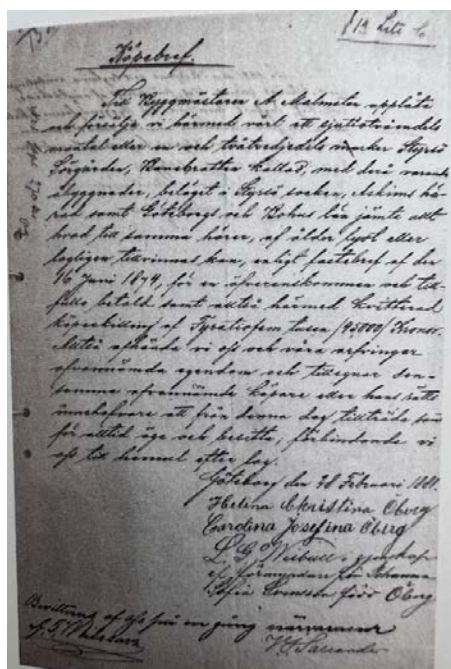 § 19 Litt b
Köpebref.
Till Byggmästaren A. Malmsten upplåta
och försälja vi härmed vårt ett sjutiotvåendels
mantal eller en och tvåtredjedels marker Styrsö
Sörgården, kallad, med derå varande
åbyggnader, beläget i Styrsö socken, Askims hä-
rad samt Göteborgs och Bohus län jämte allt
hvad till samma hörer, af ålder lydt eller
lagligen tillvinnas kan, enligt fastebref af den
16 Juni 1874, för en öfverenskommen och till
fullo betald samt alltså härmed kvitterad
köpeskilling af Fyratiofem tusen /45000/ Kronor.
Alltså afhända vi oss och våra arfvingar
ofvannämda egendom och tillegnar den-
samma ofvannämde köpare eller hans rätts
innehafvare att från denna dag tillträda samt
för alltid äga och besitta, förbindande vi
oss till hemul efter lag.
Göteborg den 28 Februari 1881.
Helena Christina Öberg
Carolina Josefina Öberg
L. G. Weibull i egenskap
af förmyndare för Johanna
Sofia Svensson född Öberg
Bevittnas af oss på en gång närvarande